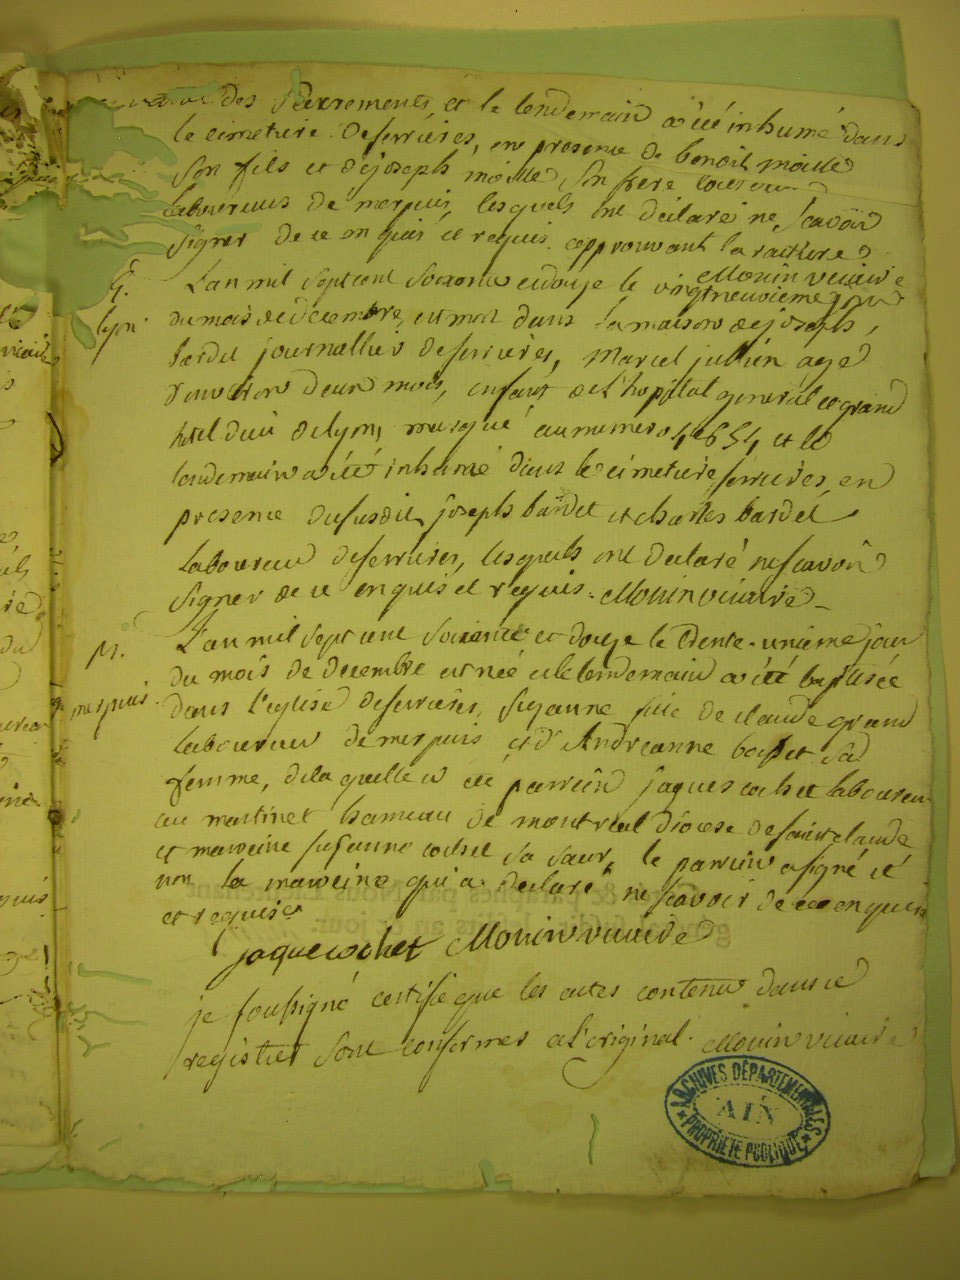 des Sacrements et le lendemain a été inhumé dans
le cimetiere deserrières, en presence de benoit moille
son fils et dejoseph moille son frere
laboureurs de merpuis, lesquels ont déclaré ne scavoir
signer de ce enquis et requis. approuvant la rature
Mouin vicaire
S.
lyon
L'an mil sept cent soixante et douze le vingtneuvieme jour
du mois dedecembre, est mort dans la maison dejoseph
bardet journallier deserrieres, Marcel jullien agé
d'environ deux mois, enfant de l'hopital general et grand
hotel dieu delyon, marqué au numero 4654 et le
landemain a été inhumé dans le cimetiere serrieres, en
presence dususdit joseph bardet et charles bardet
laboureur deserrieres, lesquels ont declaré nescavoir
signer de ce enquis et requis. Mouin vicaire
N.
merpuis
L'an mil sept cent soixante et douze le trente-unieme jour
du mois de decembre est née et le lendemain a été baptisée
dans l'eglise deserrieres, suzanne fille de claude grand
laboureur demerpuis et d'Andreanne bosset sa
femme, dela quelle a été parrein jaques cochet laboureur
au martinet hameau de montreal diocese desaint claude
et mareine susanne cochet sa sœur, le parrein a signé et
non la mareine qui a declaré ne scavoir de ce enquise
et requise
jaque cochet Mouin vicaire
je soussigné certifie que les actes contenu dans ce
registre sont conformes a l'original. Mouin vicaire
ARCHIVES DÉPARTEMENTALES
AIN
PROPRIÉTÉ PUBLIQUE